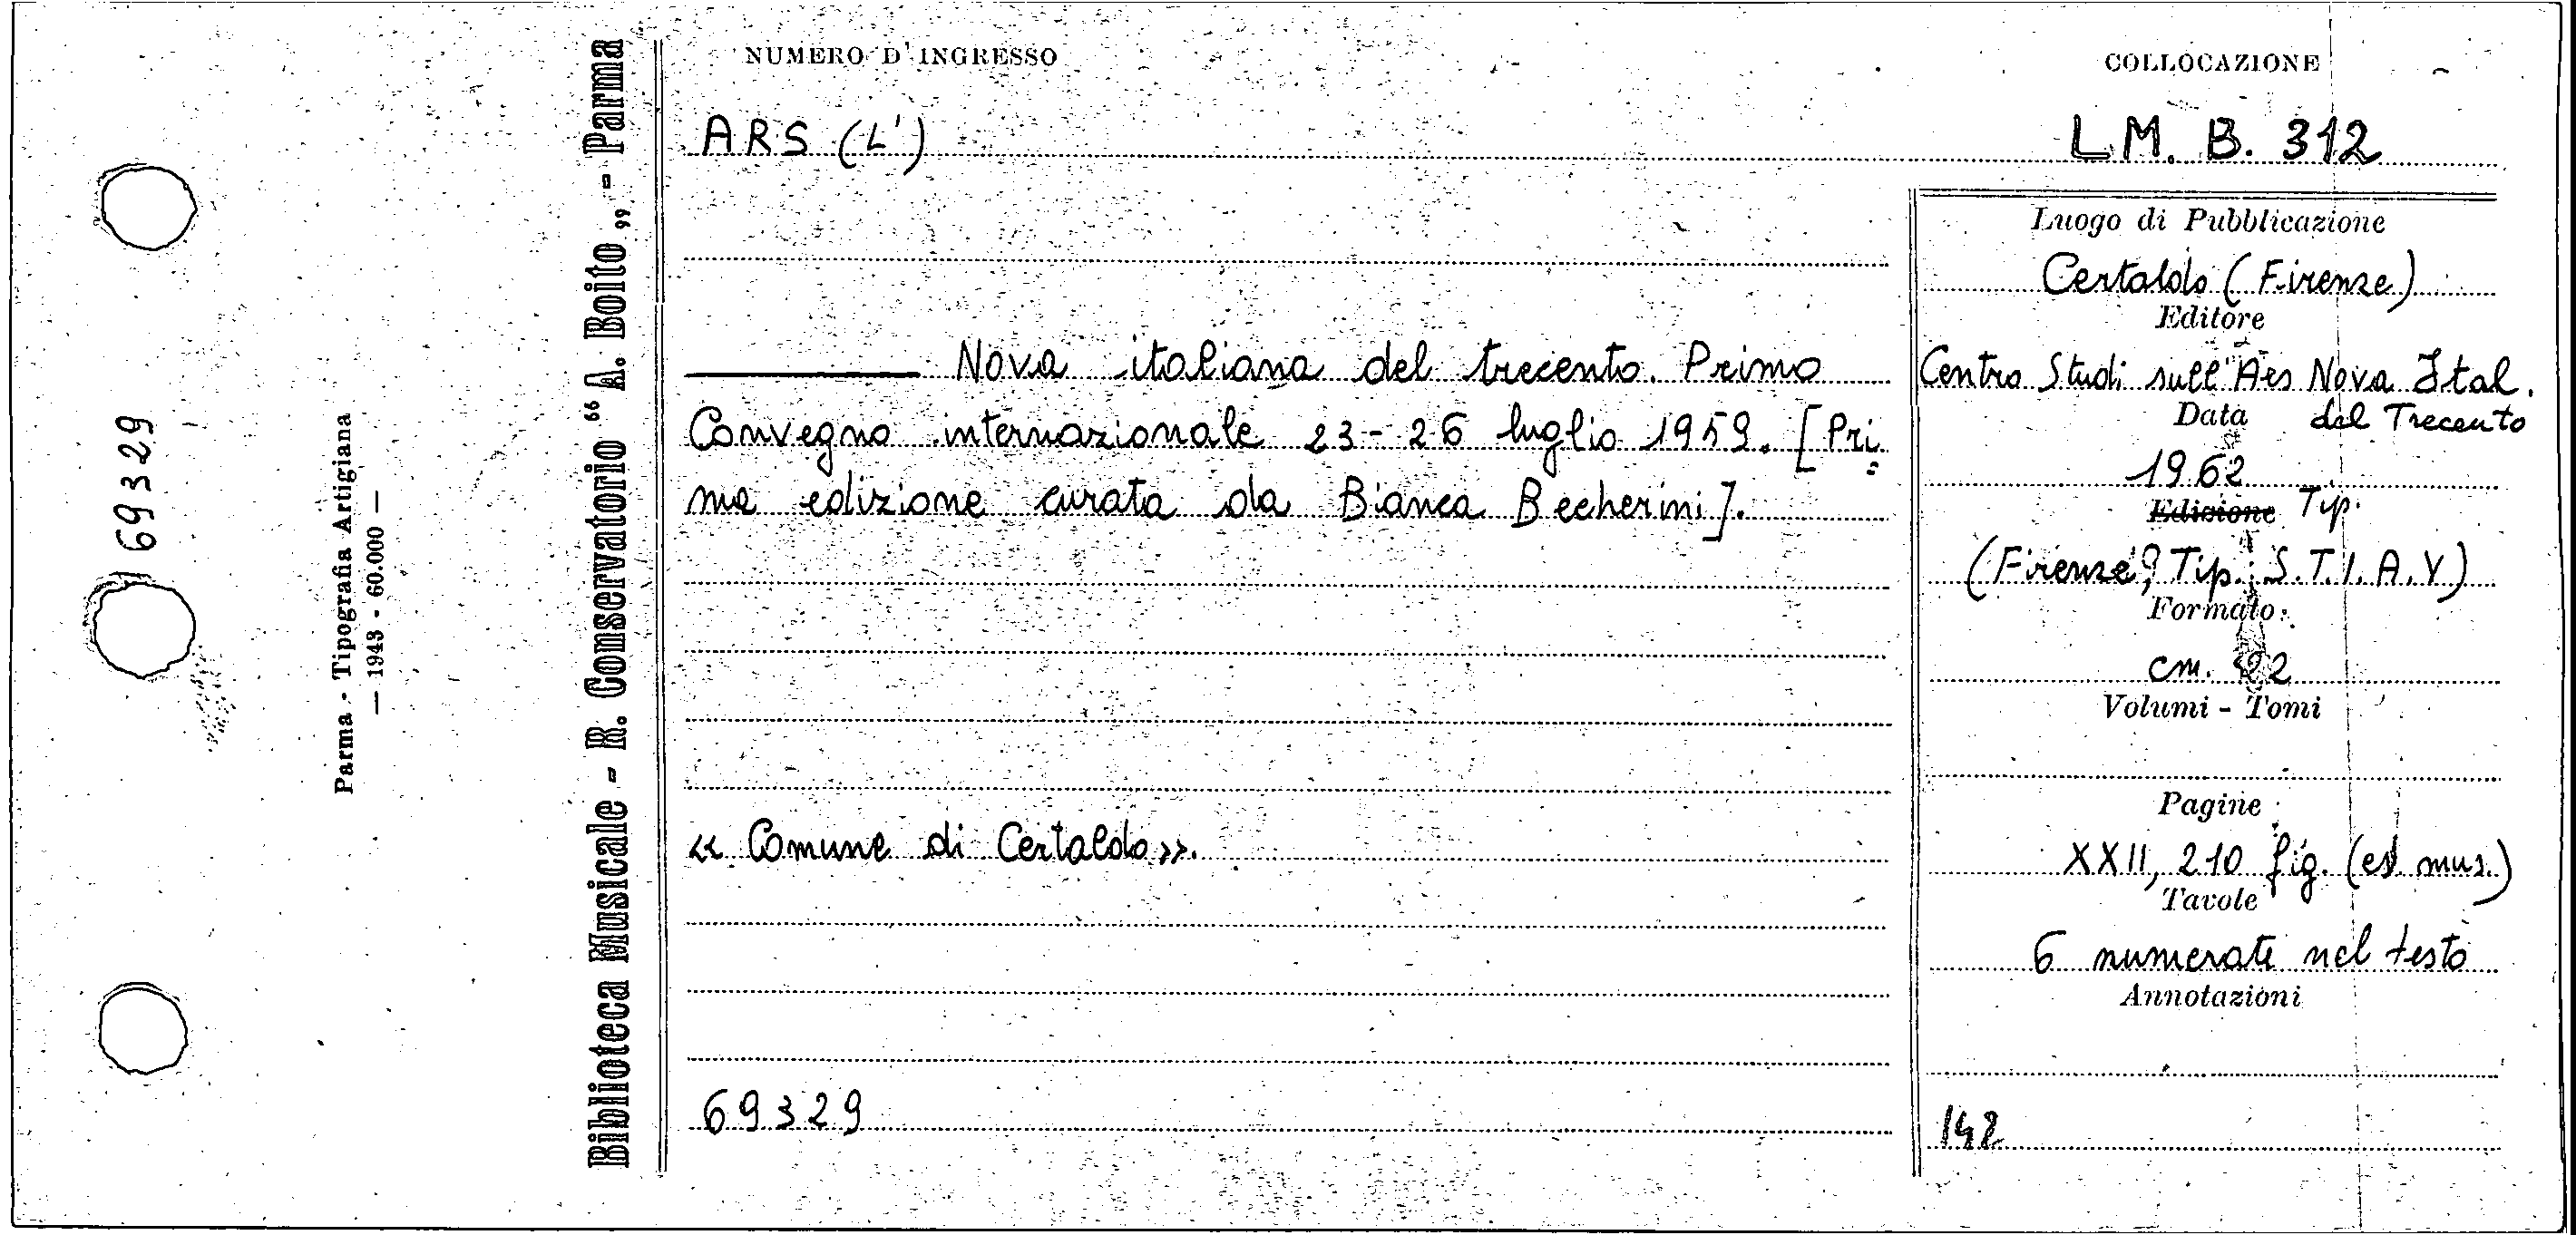 69329
Parma - Tipografia Artigiana
— 1943 - 60.000 —
Biblioteca Musicale - R. Conservatorio "A. Boito" - Parma
NUMERO D'INGRESSO
COLLOCAZIONE
ARS (L')
LM. B. 312
——— Nova italiana del trecento. Primo
Convegno internazionale 23-26 luglio 1959. [Pri=
ma edizione curata da Bianca Becherini].
«Comune di Certaldo».
69329
Luogo di Pubblicazione
Certaldo (Firenze)
Editore
Centro Studi sull'Ars Nova Ital.
del Trecento
Data
1962
Edizione Tip.
(Firenze, Tip. S.T.I.A.V)
Formato
cm. 22
Volumi - Tomi
Pagine
XXII, 210 fig. (es. mus.)
Tavole
6 numerate nel testo
Annotazioni
142